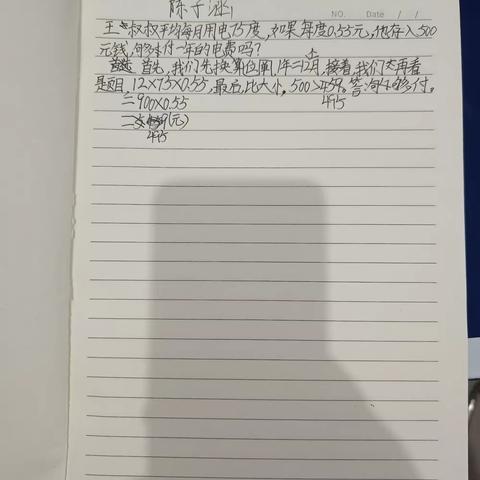 陈子涵
NO. Date / /
王叔叔平均每月用电75度,如果每度0.55元,他存入500
元钱,够支付一年的电费吗?
首先,我们先换算单位,1年=12月,接着,我们去再看
题目,12×75×0.55,最后,比大小,500>495。答:够付。
=900×0.55
=495(元)